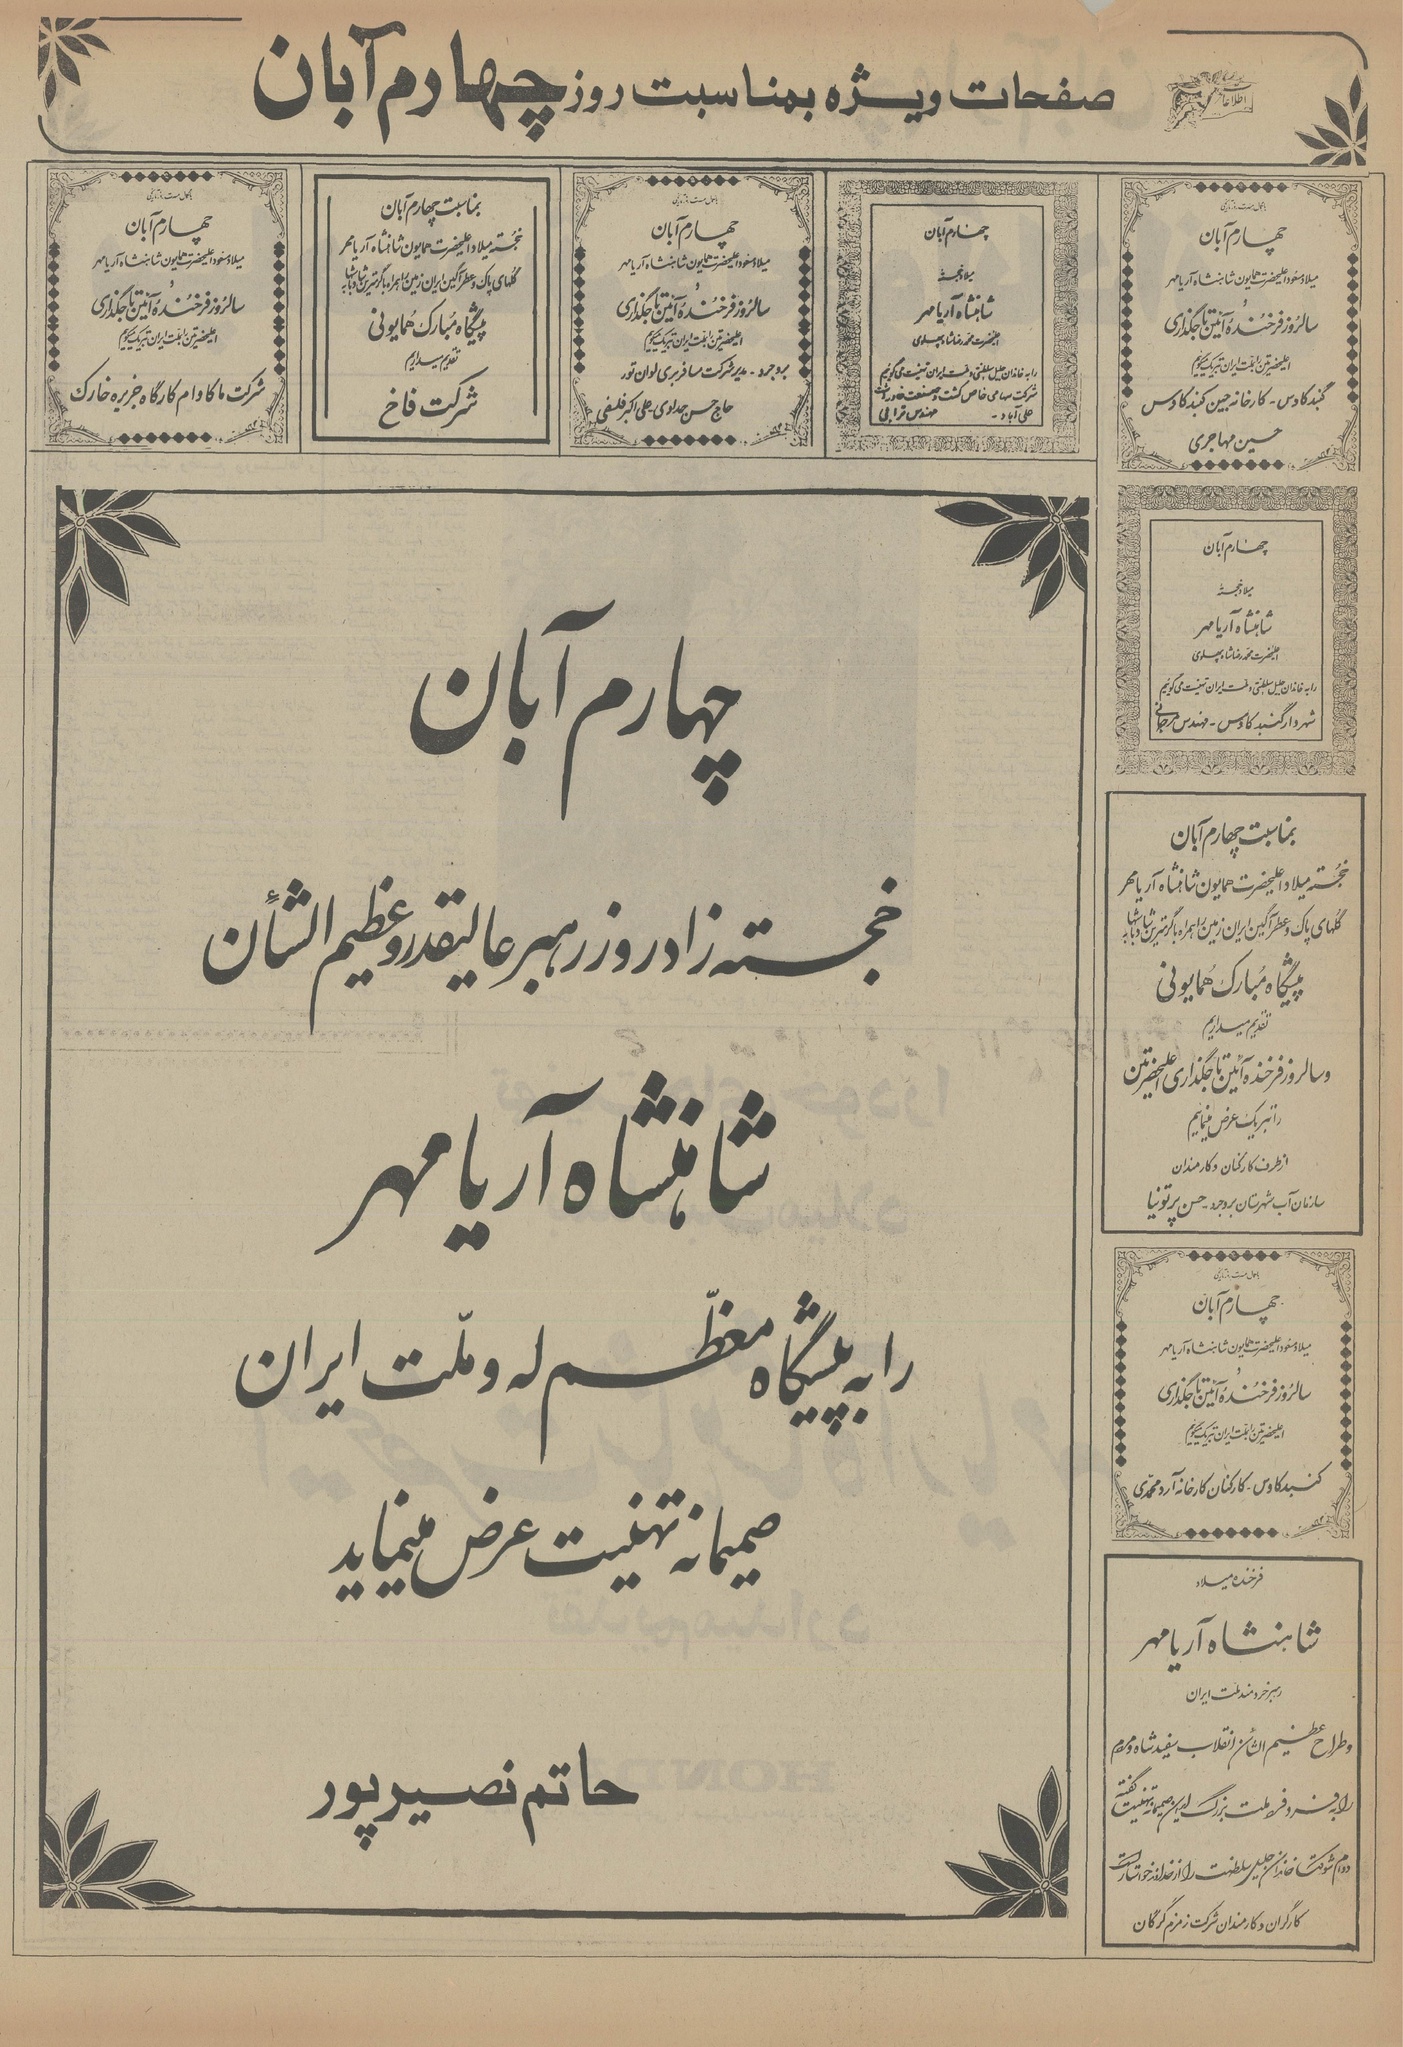 صفحات ویژه بمناسبت روز چهارم آبان
اطلاعات
چهارم آبان
میلاد مسعود اعلیحضرت همایون شاهنشاه آریامهر
و
سالروز فرخنده آئین تاجگذاری
اعلیحضرتین را بملت ایران تبریک میگوئیم
گنبد کاوس - کارخانه جین گنبد کاوس
حسین مهاجری
چهارم آبان
میلاد خجسته
شاهنشاه آریامهر
اعلیحضرت محمدرضا شاه پهلوی
را به خاندان جلیل سلطنتی و ملت ایران تهنیت می گوئیم
شرکت سهامی خاص کشت و صنعت
علی آباد - مهندس ترابی
چهارم آبان
میلاد مسعود اعلیحضرت همایون شاهنشاه آریامهر
و
سالروز فرخنده آئین تاجگذاری
اعلیحضرتین را بملت ایران تبریک میگوئیم
بروجرد - مدیر شرکت مسافربری لوان تور
حاج حسن جدادی - علی اکبر فلسفی
بمناسبت چهارم آبان
خجسته میلاد اعلیحضرت همایون شاهنشاه آریامهر
گلهای پاک و عطرآگین ایران زمین را همراه با گرمترین شادباشها به
پیشگاه مبارک همایونی
تقدیم میداریم
شرکت فاخ
چهارم آبان
میلاد مسعود اعلیحضرت همایون شاهنشاه آریامهر
و
سالروز فرخنده آئین تاجگذاری
اعلیحضرتین را بملت ایران تبریک میگوئیم
شرکت ماکادام کارگاه جزیره خارک
چهارم آبان
میلاد خجسته
شاهنشاه آریامهر
اعلیحضرت محمدرضا شاه پهلوی
را به خاندان جلیل سلطنتی و ملت ایران تهنیت می گوئیم
شهردار گنبد کاوس - مهندس مرجانی
بمناسبت چهارم آبان
خجسته میلاد اعلیحضرت همایون شاهنشاه آریامهر
گلهای پاک و عطرآگین ایران زمین را همراه با گرمترین شادباشها به
پیشگاه مبارک همایونی
تقدیم میداریم
و سالروز فرخنده آئین تاجگذاری اعلیحضرتین
را تبریک عرض مینمائیم
از طرف کارکنان و کارمندان
سازمان آب شهرستان بروجرد - حسن پرتونیا
چهارم آبان
میلاد مسعود اعلیحضرت همایون شاهنشاه آریامهر
و
سالروز فرخنده آئین تاجگذاری
اعلیحضرتین را بملت ایران تبریک میگوئیم
گنبد کاوس - کارکنان کارخانه آرد محمدی
فرخنده میلاد
شاهنشاه آریامهر
رهبر خردمند ملت ایران
و طراح عظیم الشأن انقلاب سفید شاه و مردم
را به فرد فرد ملت بزرگ ایران صمیمانه تهنیت گفته
دوام شوکت خاندان جلیل سلطنت را از خداوند خواستار است
کارگران و کارمندان شرکت زمزم گرگان
چهارم آبان
خجسته زادروز رهبر عالیقدر و عظیم الشأن
شاهنشاه آریامهر
را به پیشگاه معظم له و ملّت ایران
صمیمانه تهنیت عرض مینماید
حاتم نصیرپور